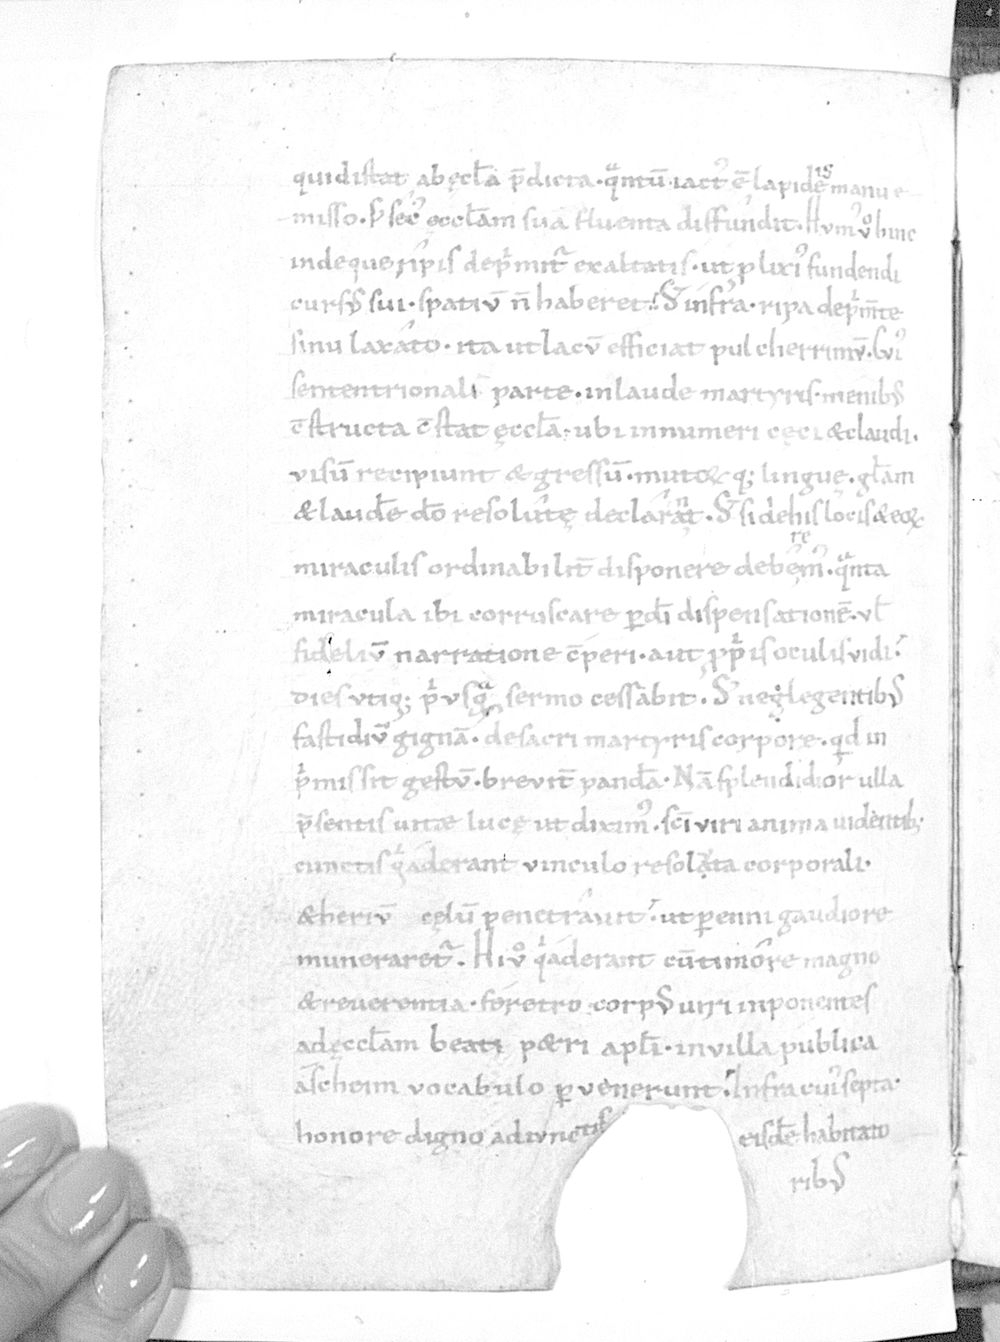 qui distat ab ęcclā p̄dicta · qͣntū iactꝰ ē lapidēis manu e
misso · P̱ sec̄ ęcclam sua fluenta diffundit · Hvmꝰ v̊ hinc
inde que ripis dep̍mit᷑ exaltatis · ut plixiꝰ fundendi
cursꝰ sui · spatiū n̄ haberet · S; infra · ripa dep̍m̄te
sinu laxato · ita ut lacū efficiat pulcherrimū · Cuiꝰ
sententrionali parte · in laude martyris · menibꝰ
c̄structa c̄stat ęcclā · ubi innumeri cęci & claudi ·
visū recipiunt & gressū · mutoꝝ q; lingue · gl̄am
& laudē dō resolutę declarant · S; si de his locis & eoꝝ
miraculis ordinabilit̄ disponere deberemꝰ · qͣnta
miracula ibi corruscare ꝑ dī dispensationē · vl̄
fideliū narratione c̄peri · aut ꝓp̍is oculis vidi
dies utiq; p̍usqͣ sermo cessabit · S; neglegentibꝰ
fastidiū gignā · de sacri martyris corpore · qd in
p̍missit gestū · brevit̄ pandā · Nā splendidior ulla
p̄sentis uitae lucę ut diximꝰ · sc̄i viri anima uidentib;
cunctis q̍ aderant vinculo resoluta corporali ·
& heriū cęlū penetrauit · ut ꝑenni gaudiore
muneraret᷑ · Hi v̊ q̍ aderant cū timore magno
& reuerentia · feretro corpꝰ uiri inponentes
ad ęcclam beati p&ri apl̄i · in villa publica
ascheim vocabulo ꝑvenerunt · Infra cuiꝰ septa ·
honore digno adiunctis eisdē habitato
ribꝰ